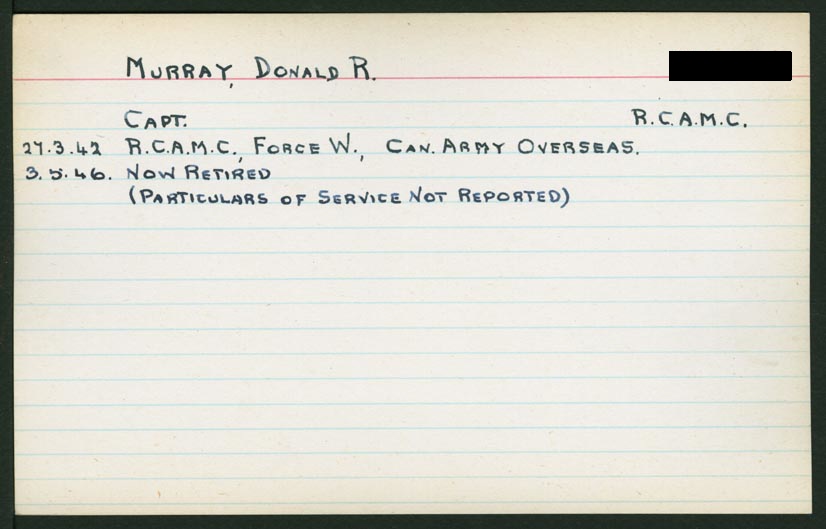 MURRAY, DONALD R.
CAPT. R.C.A.M.C.
27.3.42 R.C.A.M.C., FORCE W., CAN. ARMY OVERSEAS.
3.5.46. NOW RETIRED
(PARTICULARS OF SERVICE NOT REPORTED)